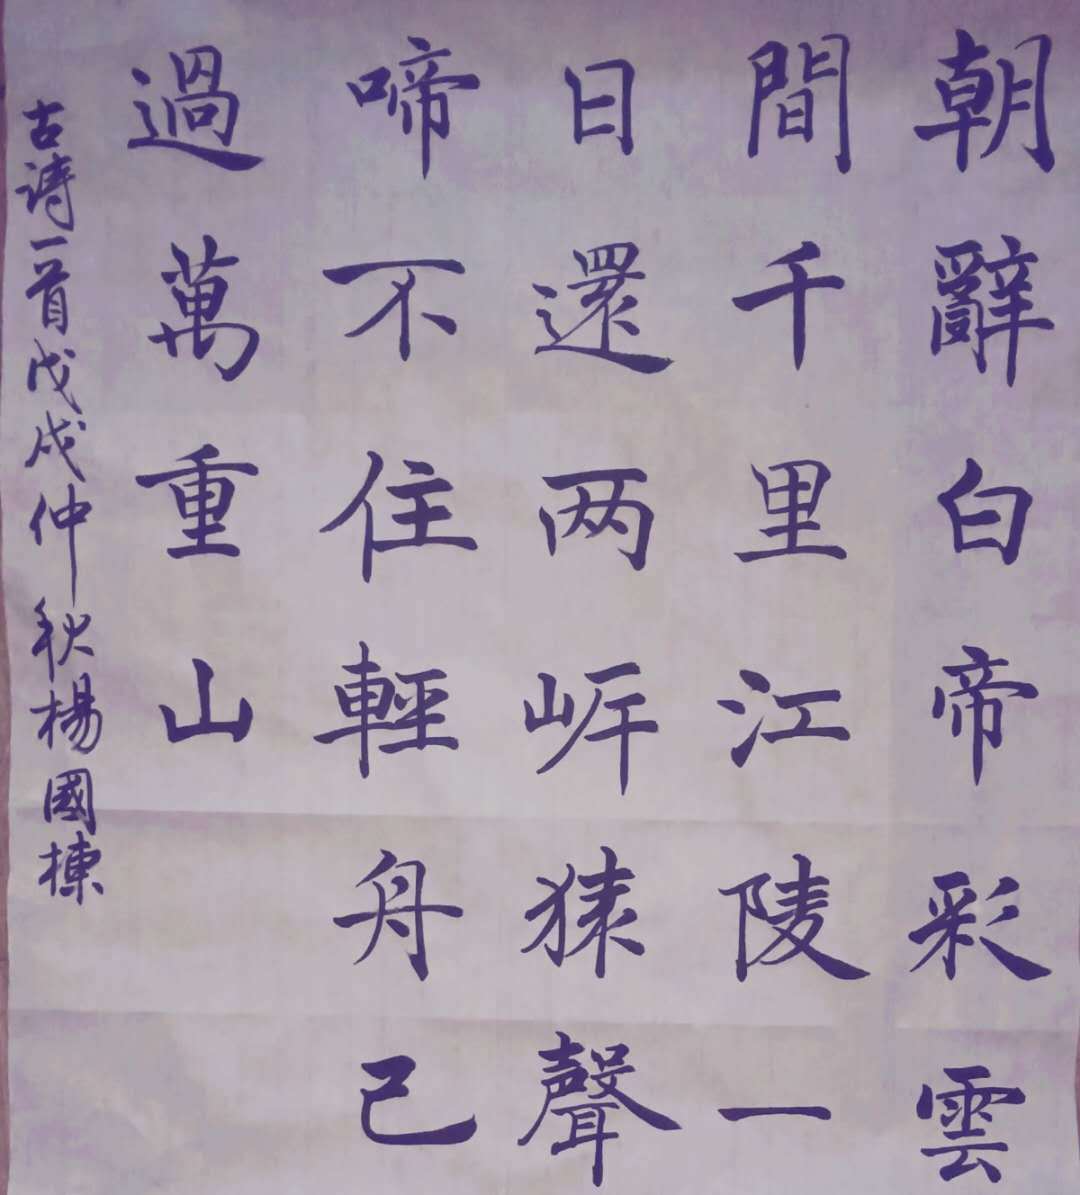 朝辭白帝彩雲
間千里江陵一
日還两岸猿聲
啼不住輕舟已
過萬重山
古詩一首戊戌仲秋楊國棟